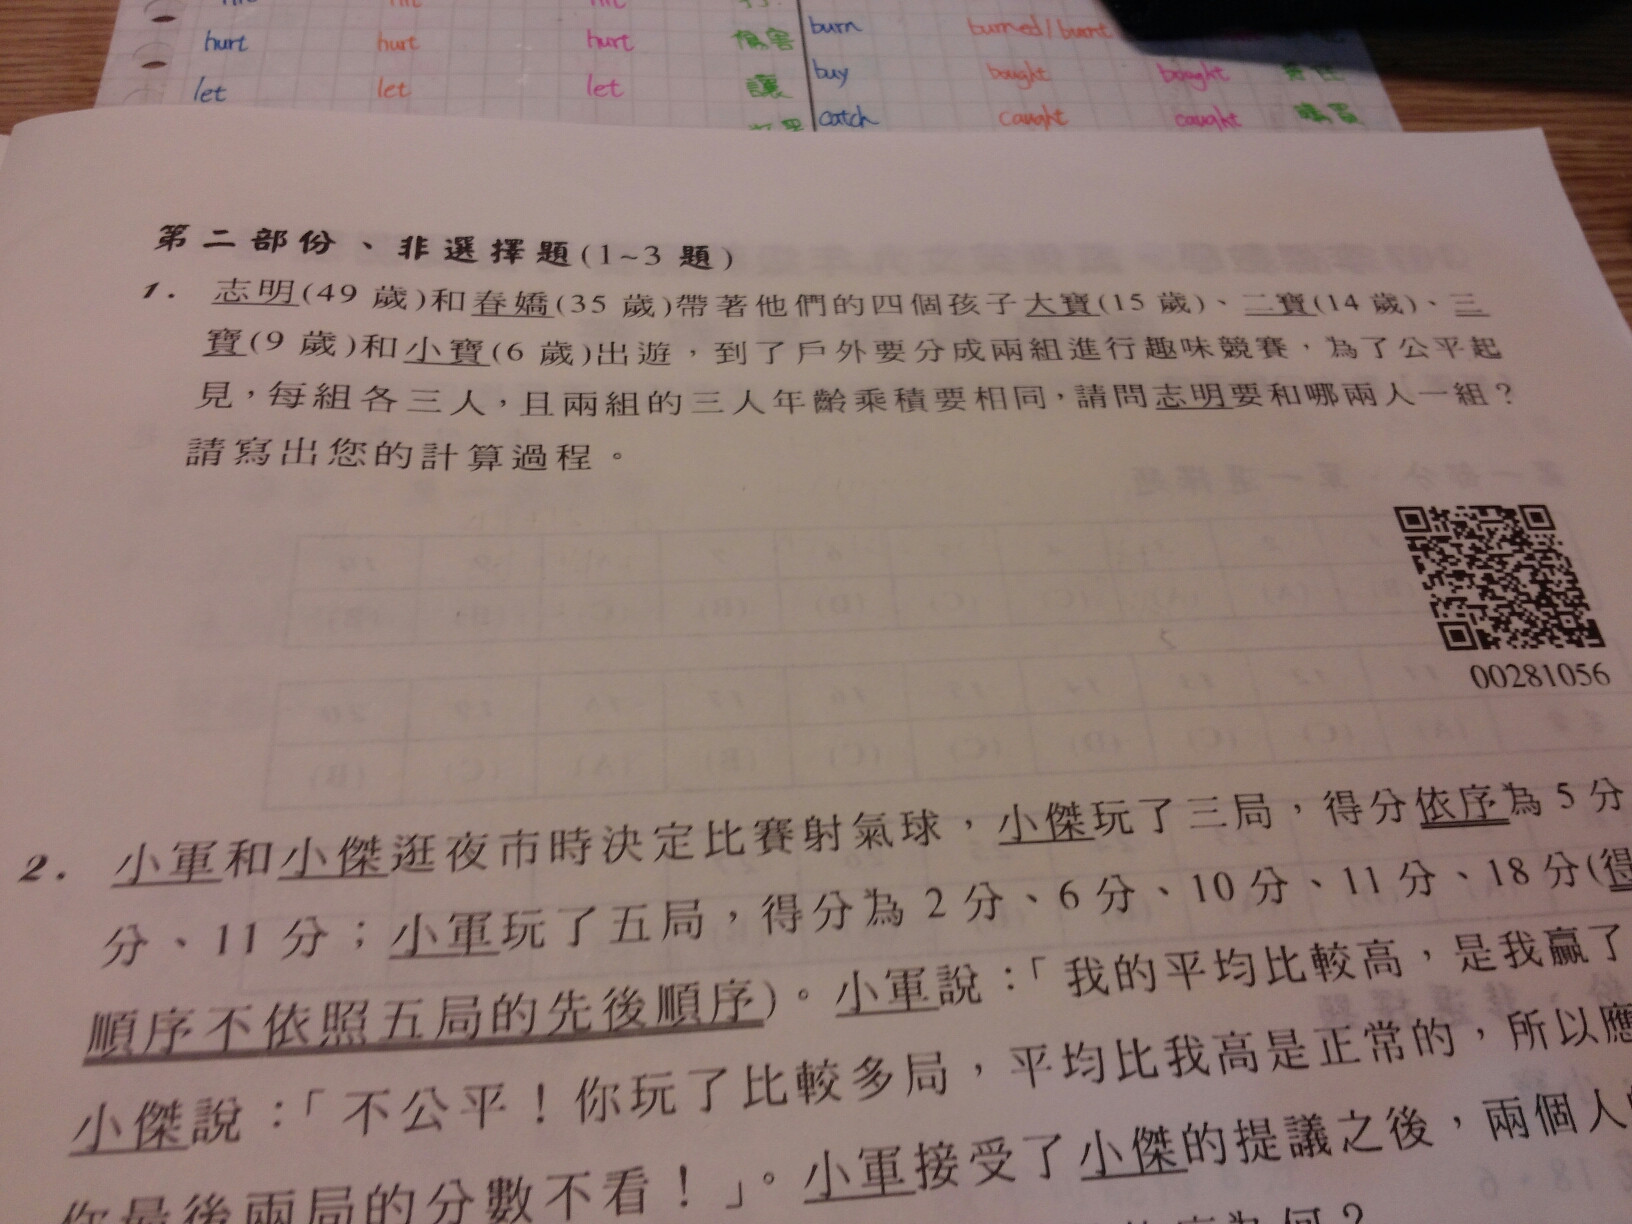 hurt hurt hurt 損害 burn burned/burnt
let let let 讓 buy bought bought
catch caught caught 購買
第二部份、非選擇題(1~3題)
1. 志明(49歲)和春嬌(35歲)帶著他們的四個孩子大寶(15歲)、二寶(14歲)、三
寶(9歲)和小寶(6歲)出遊，到了戶外要分成兩組進行趣味競賽，為了公平起
見，每組各三人，且兩組的三人年齡乘積要相同，請問志明要和哪兩人一組？
請寫出您的計算過程。
00281056
2. 小軍和小傑逛夜市時決定比賽射氣球，小傑玩了三局，得分依序為5分
分、11分；小軍玩了五局，得分為2分、6分、10分、11分、18分(得
順序不依照五局的先後順序)。小軍說：「我的平均比較高，是我贏了
小傑說：「不公平！你玩了比較多局，平均比我高是正常的，所以應
你最後兩局的分數不看！」。小軍接受了小傑的提議之後，兩個人
為何？